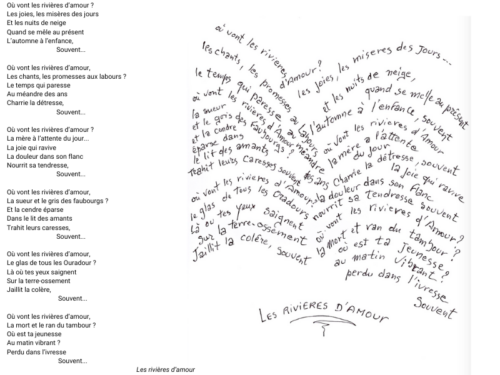 Où vont les rivières d'amour ?
Les joies, les misères des jours
Et les nuits de neige
Quand se mêle au présent
L'automne à l'enfance,
Souvent...
Où vont les rivières d'amour,
Les chants, les promesses aux labours ?
Le temps qui paresse
Au méandre des ans
Charrie la détresse,
Souvent...
Où vont les rivières d'amour ?
La mère à l'attente du jour...
La joie qui ravive
La douleur dans son flanc
Nourrit sa tendresse,
Souvent...
Où vont les rivières d'amour,
La sueur et le gris des faubourgs ?
Et la cendre éparse
Dans le lit des amants
Trahit leurs caresses,
Souvent...
Où vont les rivières d'amour,
Le glas de tous les Ouradour ?
Là où tes yeux saignent
Sur la terre-ossement
Jaillit la colère,
Souvent...
Où vont les rivières d'amour,
La mort et le ran du tambour ?
Où est ta jeunesse
Au matin vibrant ?
Perdu dans l'ivresse
Souvent...
Les rivières d'amour
où vont les rivières d'Amour?
les joies, les misères des Jours...
et les nuits de neige,
quand se melle au présent
l'automne à l'enfance, souvent
où vont les rivières d'Amour
les chants, les promesses
le temps qui paresse
au méandre
des ans charrie la détresse, souvent
où vont les rivières d'Amour
la mère a l'attente
du jour
la joie qui ravive
la douleur dans son flanc
nourrit sa tendresse souvent
où vont les rivières d'Amour
la sueur
et le gris des faubourgs?
et la cendre
éparse dans
le lit des amants
trahit leurs caresses souvent
où vont les rivières d'Amour,
le glas de tous les Ouradours
Là où tes yeux saignent
sur la terre-ossement
Jaillit la colère, souvent
où vont les rivières d'Amour?
la mort et ran du tambour?
où est ta jeunesse
au matin vibrant?
perdu dans l'ivresse
Souvent
LES RIVIERES D'AMOUR